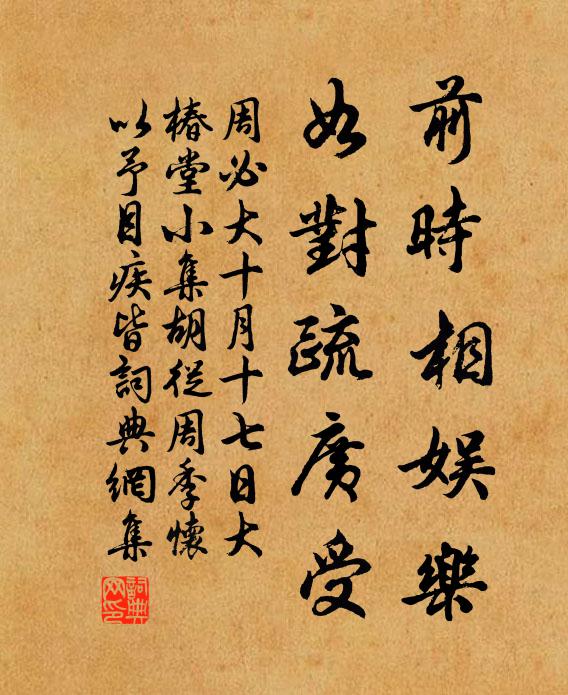 前時相娛樂
如對疏廣受
周必大十月十七日大
椿堂小集胡從周季懷
以予目疾皆詞典網集
詞典網印